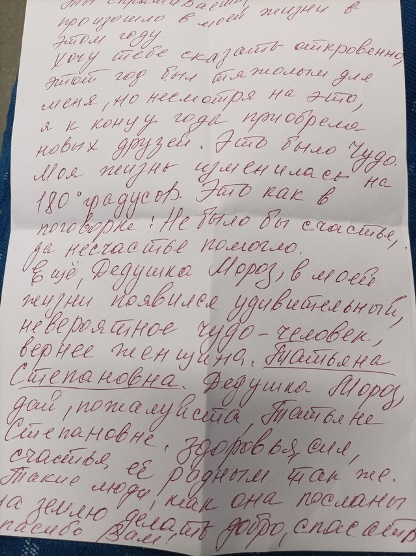 Ты спрашиваешь,
произошло в моей жизни в
этом году.
Хочу тебе сказать откровенно,
этот год был тяжолым для
меня, но несмотря на это,
я к концу года приобрела
новых друзей. Это было Чудо.
Моя жизнь изменилась на
180° градусов. Это как в
поговорке! Не было бы счастье,
да несчастье помогло.
Ещё, Дедушка Мороз, в моей
жизни появился удивительный,
невероятное чудо-человек,
вернее женщина. Татьяна
Степановна. Дедушка Мороз,
дай, пожалуйста, Татьяне
Степановне здоровья, сил,
счастья, её родным так же.
Такие люди, как она посланы
на землю делать добро, спасать
спасибо Вам